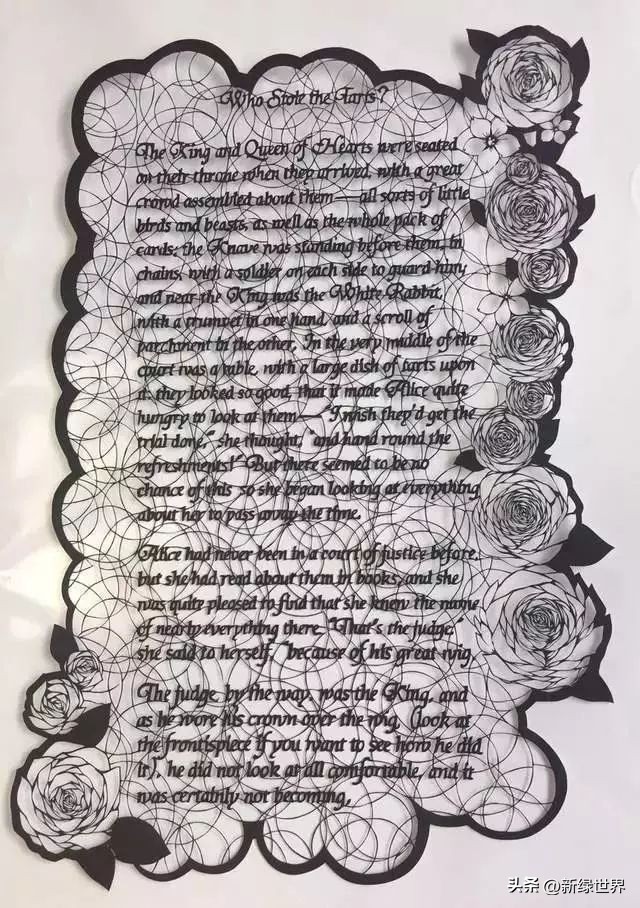 Who Stole the Tarts?
The King and Queen of Hearts were seated
on their throne when they arrived, with a great
crowd assembled about them—all sorts of little
birds and beasts, as well as the whole pack of
cards: the Knave was standing before them, in
chains, with a soldier on each side to guard him;
and near the King was the White Rabbit,
with a trumpet in one hand, and a scroll of
parchment in the other. In the very middle of the
court was a table, with a large dish of tarts upon
it: they looked so good, that it made Alice quite
hungry to look at them—"I wish they'd get the
trial done," she thought, "and hand round the
refreshments!" But there seemed to be no
chance of this so she began looking at everything
about her to pass away the time.
Alice had never been in a court of justice before,
but she had read about them in books, and she
was quite pleased to find that she knew the name
of nearly everything there. "That's the judge,"
she said to herself, "because of his great wig.
The judge, by the way, was the King, and
as he wore his crown over the wig, (look at
the frontispiece if you want to see how he did
it), he did not look at all comfortable, and it
was certainly not becoming.
头条 @新绿世界